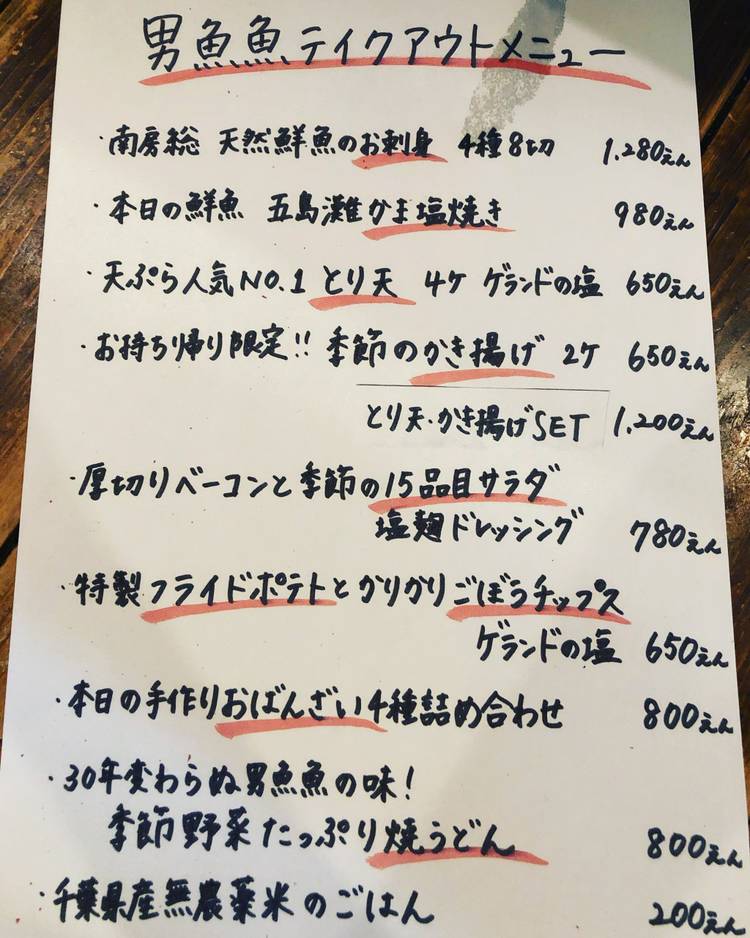 男魚魚テイクアウトメニュー
・南房総 天然鮮魚のお刺身 4種8切 1,280えん
・本日の鮮魚 五島灘かま塩焼き 980えん
・天ぷら人気NO.1 とり天 4ケ ゲランドの塩 650えん
・お持ち帰り限定!! 季節のかき揚げ 2ケ 650えん
とり天・かき揚げSET 1,200えん
・厚切りベーコンと季節の15品目サラダ
塩麹ドレッシング 780えん
・特製フライドポテトとかりかりごぼうチップス
ゲランドの塩 650えん
・本日の手作りおばんざい4種詰め合わせ 800えん
・30年変わらぬ男魚魚の味!
季節野菜たっぷり焼うどん 800えん
・千葉県産無農薬米のごはん 200えん